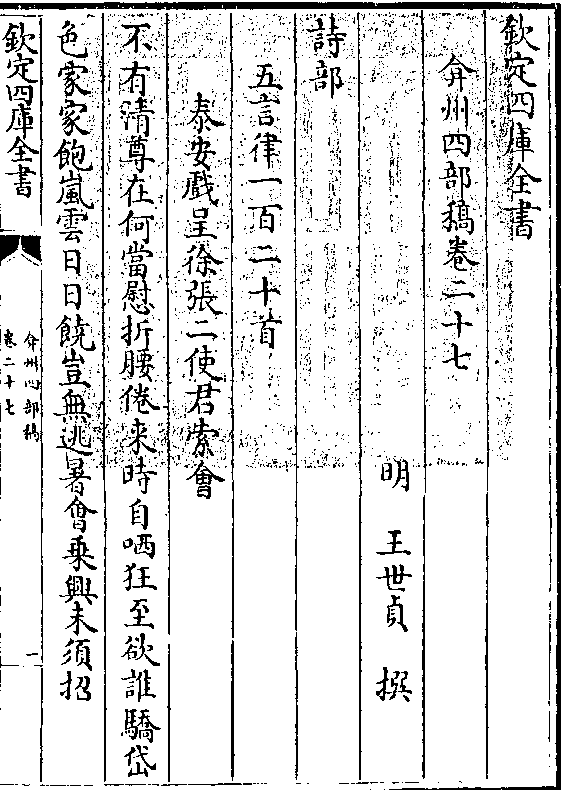 欽定四庫全書
弇州四部稿卷二十七
明　王世貞　撰
詩部
五言律一百二十首
泰安戲呈徐張二使君索會
不有清尊在何當慰折腰倦来時自哂狂至欲誰驕岱
色家家飽嵐雲日日饒豈無逃暑會乗興未須招
欽定四庫全書
弇州四部稿
卷二十七
一